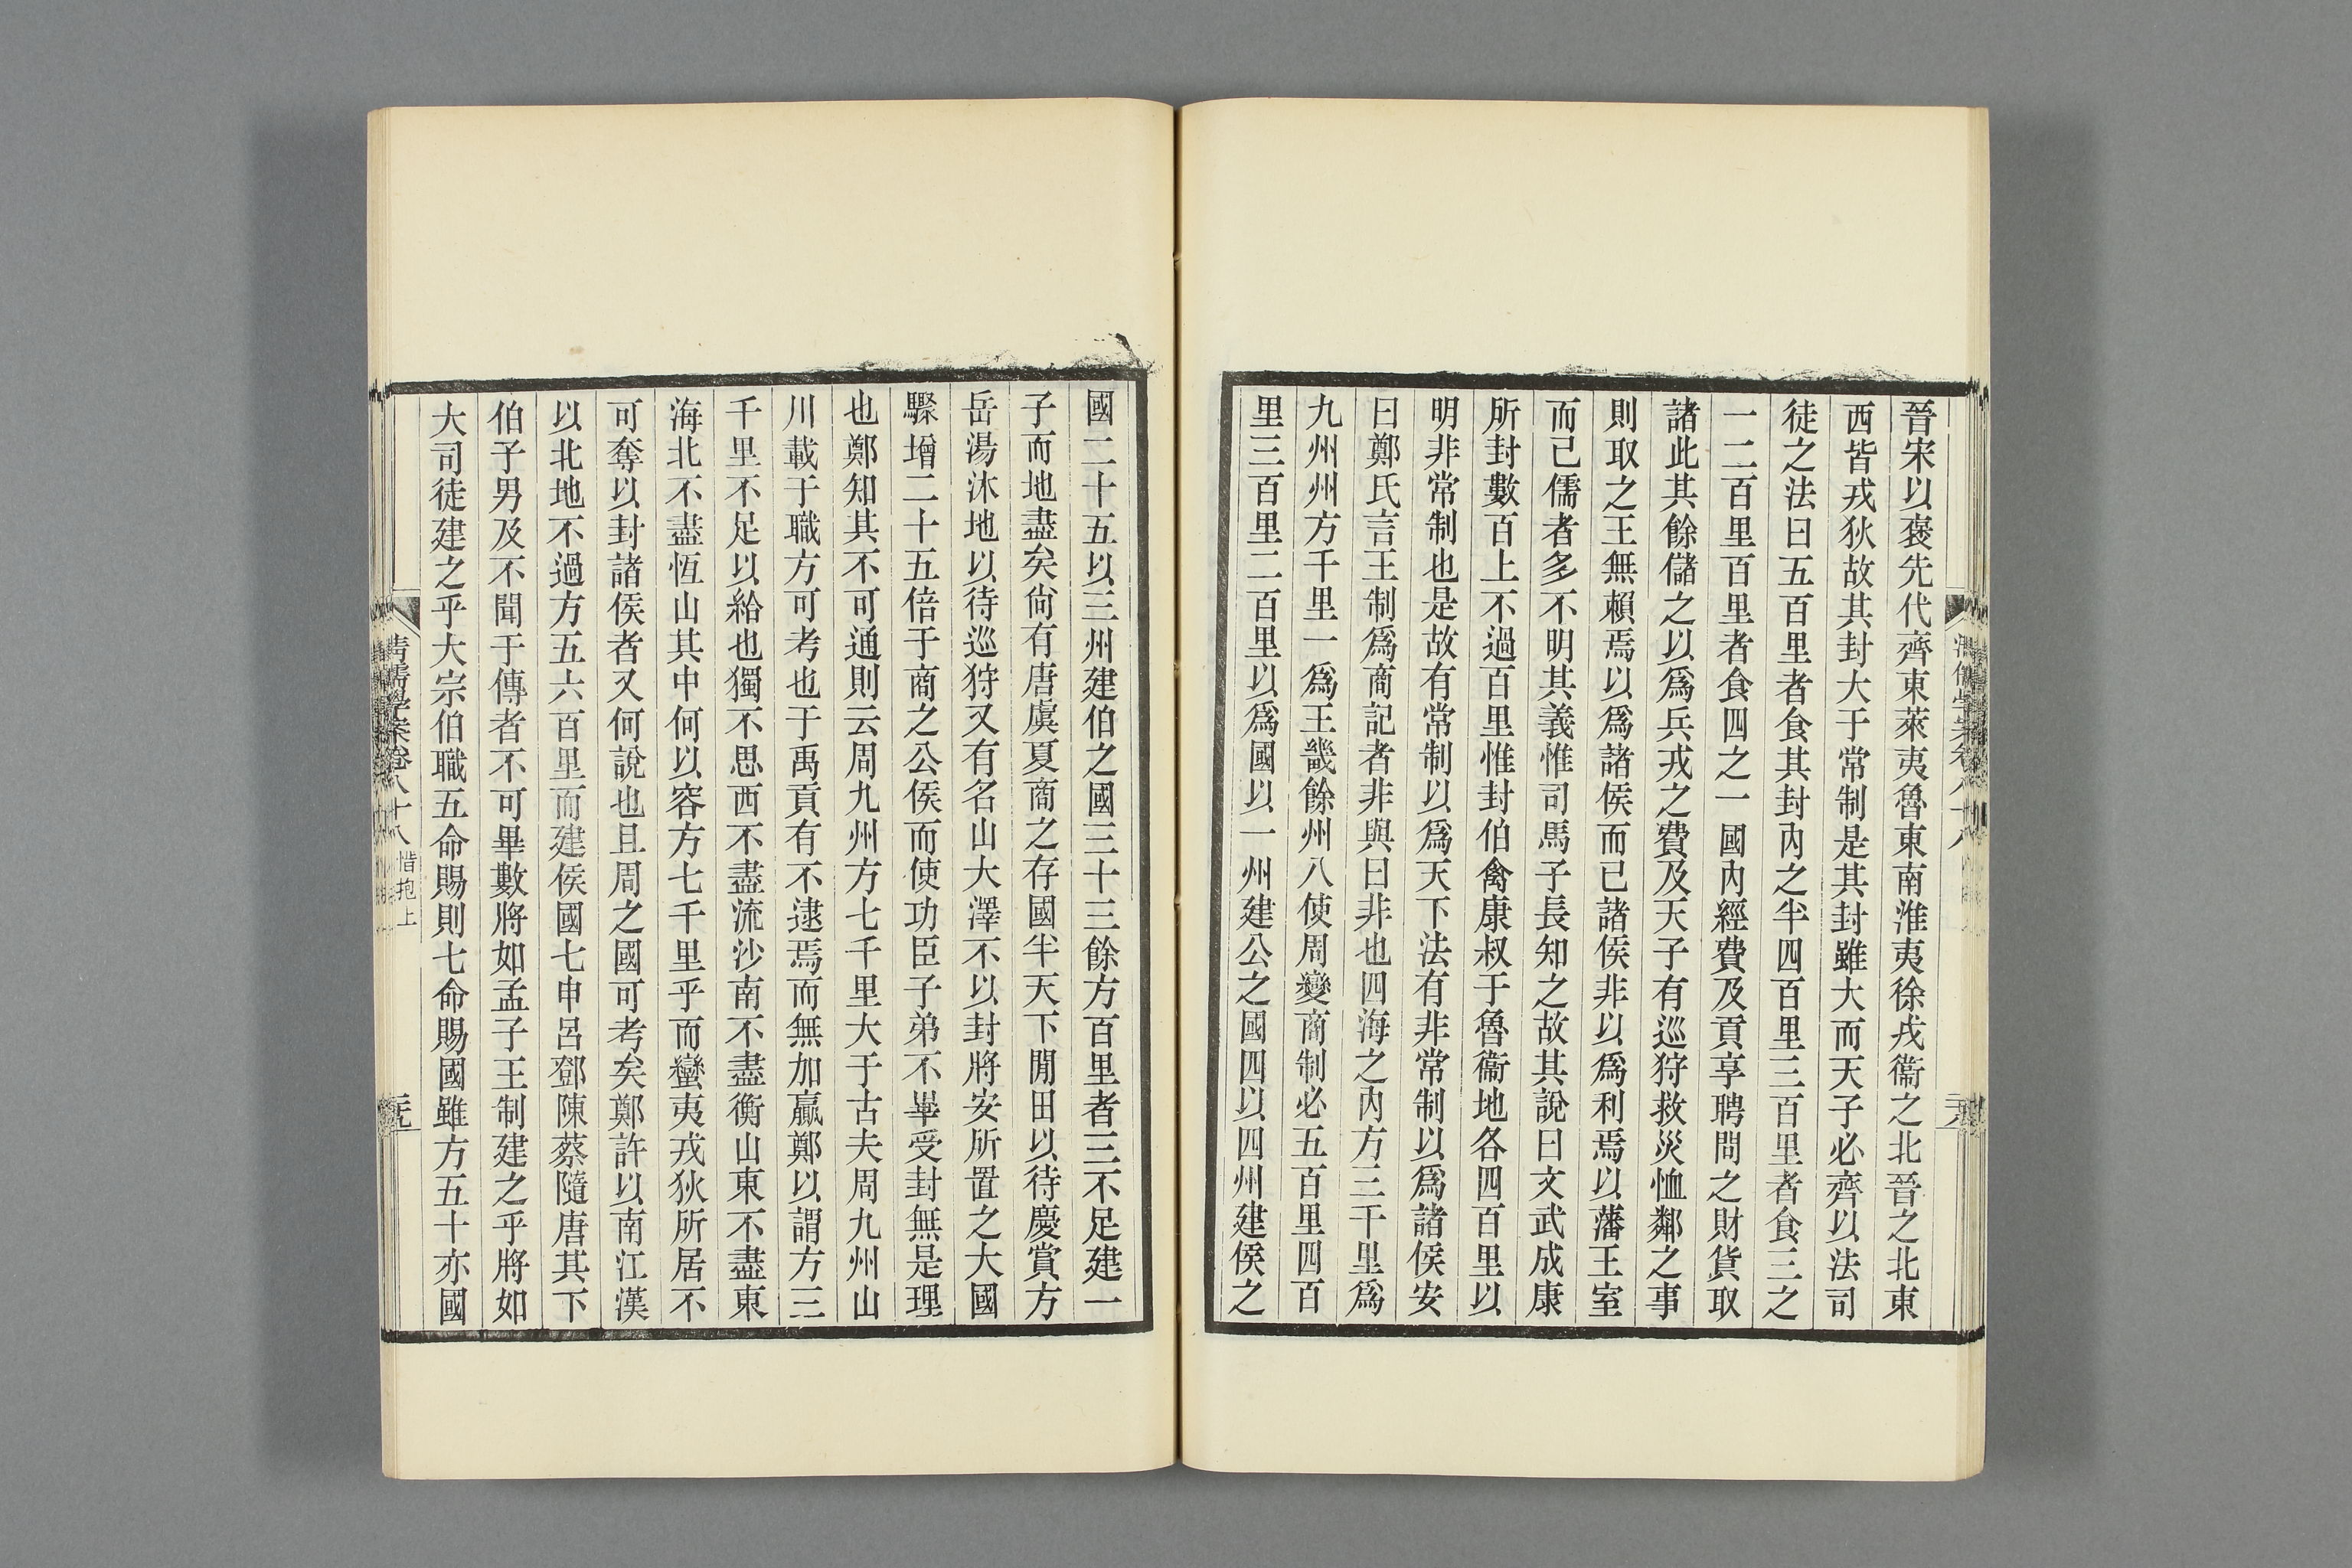 晉宋以褒先代齊東萊夷魯東南淮夷徐戎衞之北晉之北東
西皆戎狄故其封大于常制是其封雖大而天子必齊以法司
徒之法曰五百里者食其封內之半四百里三百里者食三之
一二百里百里者食四之一國內經費及貢享聘問之財貨取
諸此其餘儲之以爲兵戎之費及天子有巡狩救災恤鄰之事
則取之王無賴焉以爲諸侯而已諸侯非以爲利焉以藩王室
而已儒者多不明其義惟司馬子長知之故其說曰文武成康
所封數百上不過百里惟封伯禽康叔于魯衞地各四百里以
明非常制也是故有常制以爲天下法有非常制以爲諸侯安
曰鄭氏言王制爲商記者非與曰非也四海之內方三千里爲
九州州方千里一爲王畿餘州八使周變商制必五百里四百
里三百里二百里以爲國以一州建公之國四以四州建侯之
國二十五以三州建伯之國三十三餘方百里者三不足建一
子而地盡矣尙有唐虞夏商之存國半天下閒田以待慶賞方
岳湯沐地以待巡狩又有名山大澤不以封將安所置之大國
驟增二十五倍于商之公侯而使功臣子弟不畢受封無是理
也鄭知其不可通則云周九州方七千里大于古夫周九州山
川載于職方可考也于禹貢有不逮焉而無加贏鄭以謂方三
千里不足以給也獨不思西不盡流沙南不盡衡山東不盡東
海北不盡恆山其中何以容方七千里乎而蠻夷戎狄所居不
可奪以封諸侯者又何說也且周之國可考矣鄭許以南江漢
以北地不過方五六百里而建侯國七申呂鄧陳蔡隨唐其下
伯子男及不聞于傳者不可畢數將如孟子王制建之乎將如
大司徒建之乎大宗伯職五命賜則七命賜國雖方五十亦國
清儒學案卷八十八 惜抱上